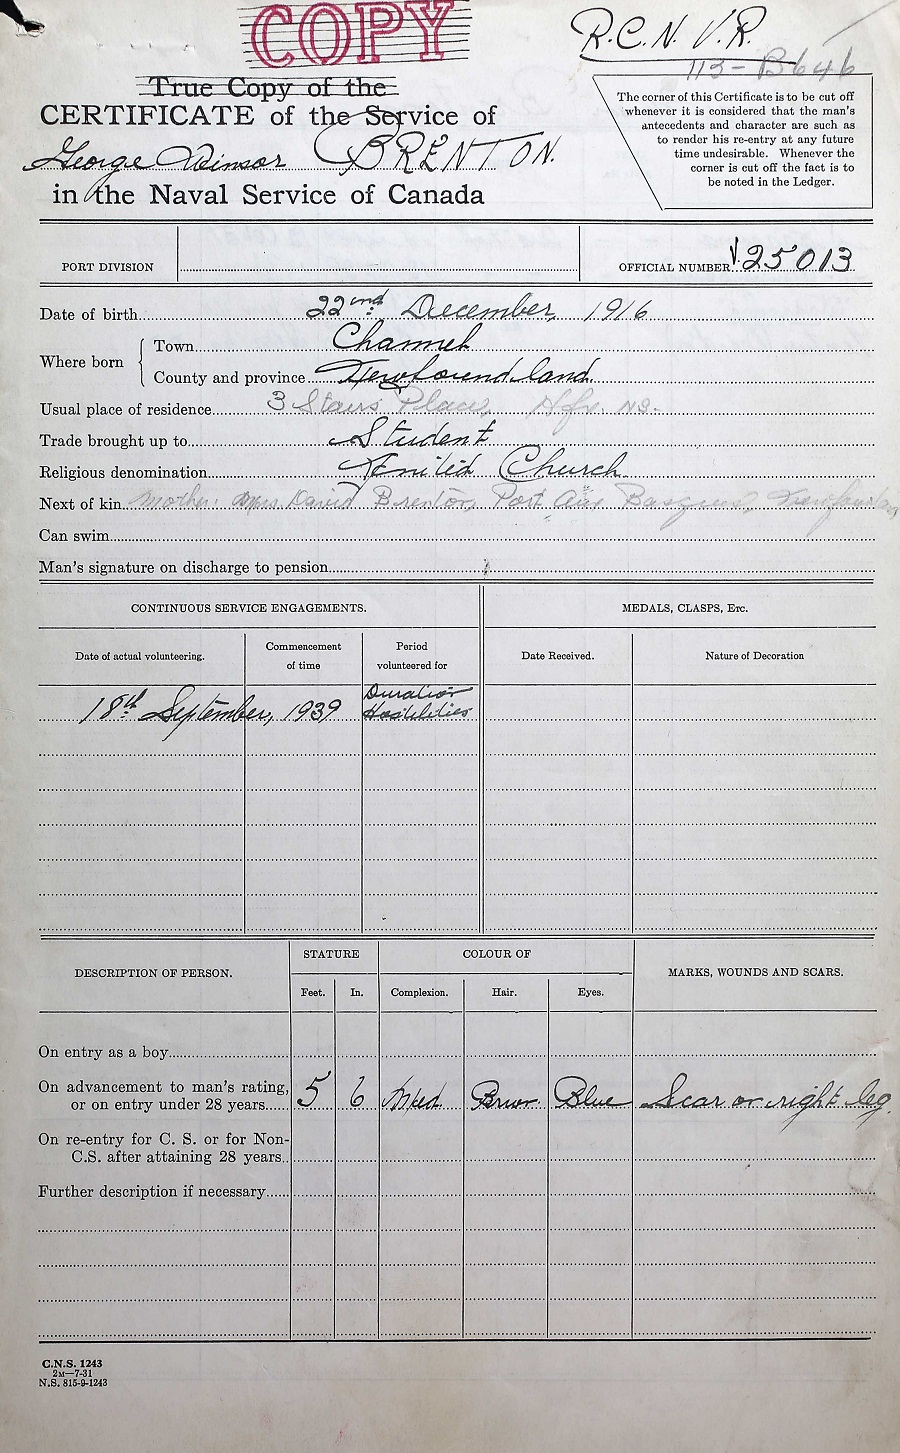 COPY
R.C.N.V.R.
113-B646
True Copy of the
CERTIFICATE of the Service of
George Winsor BRENTON.
in the Naval Service of Canada
The corner of this Certificate is to be cut off
whenever it is considered that the man's
antecedents and character are such as
to render his re-entry at any future
time undesirable. Whenever the
corner is cut off the fact is to
be noted in the Ledger.
PORT DIVISION
OFFICIAL NUMBER V25013
Date of birth 22nd December, 1916
Where born
Town Channel
County and province Newfoundland
Usual place of residence 3 Stairs Place, Hfx. NS.
Trade brought up to Student
Religious denomination United Church
Next of kin Mother: Mrs David Brenton, Port Aux Basques,
Can swim
Man's signature on discharge to pension
CONTINUOUS SERVICE ENGAGEMENTS.
MEDALS, CLASPS, Etc.
Date of actual volunteering.
Commencement
of time
Period
volunteered for
Date Received.
Nature of Decoration
18th September, 1939
Duration
Hostilities
DESCRIPTION OF PERSON.
STATURE
COLOUR OF
MARKS, WOUNDS AND SCARS.
Feet.
In.
Complexion.
Hair.
Eyes.
On entry as a boy
On advancement to man's rating,
or on entry under 28 years 5 6 Med. Brown Blue Scar on right leg.
On re-entry for C. S. or for Non-
C.S. after attaining 28 years
Further description if necessary
C.N.S. 1243
2M—7-31
N.S. 815-9-1243